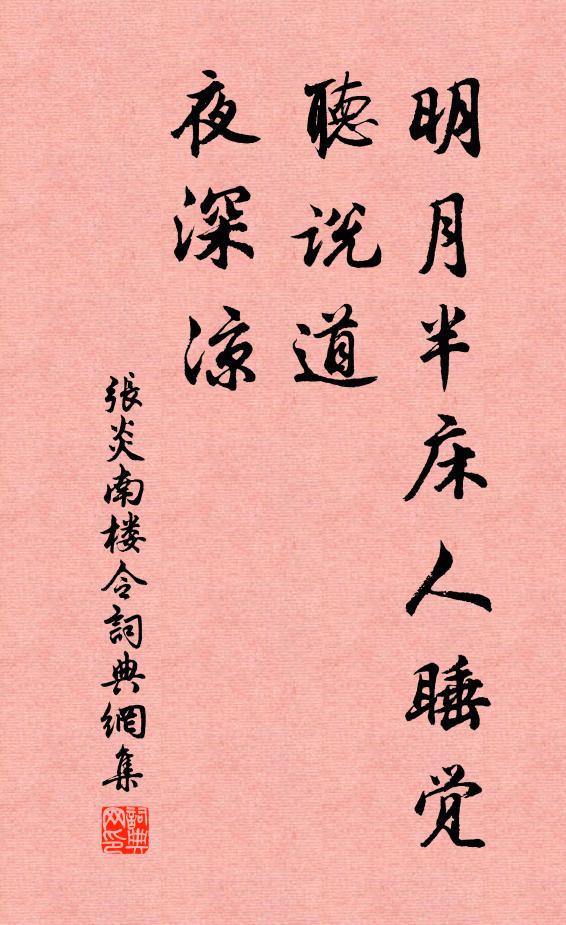 明月半床人睡觉
聽説道
夜深凉
張炎南楼令詞典網集
詞典网印